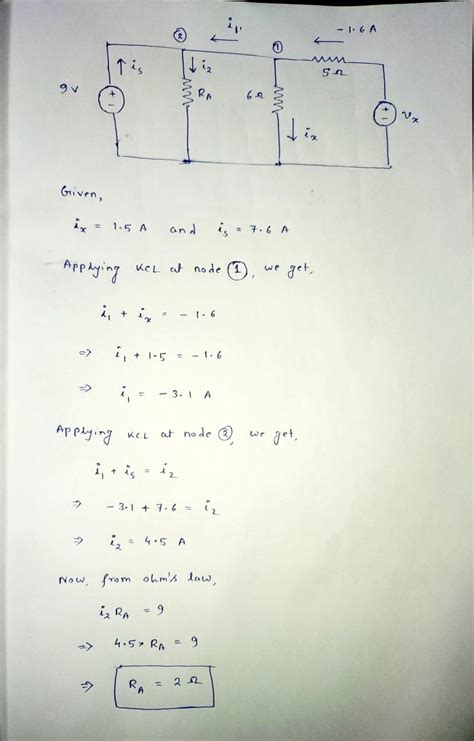 ② i₁, ① - 1.6 A
↑ is ↓ i₂ 5 Ω
9 V + - RA 6 Ω + - vx
↓ ix
Given,
ix = 1.5 A and is = 7.6 A
Applying KCL at node ①, we get,
i₁ + ix = - 1.6
=> i₁ + 1.5 = - 1.6
=> i₁ = - 3.1 A
Applying KCL at node ②, we get,
i₁ + is = i₂
=> - 3.1 + 7.6 = i₂
=> i₂ = 4.5 A
Now, from ohm's law,
i₂ RA = 9
=> 4.5 × RA = 9
=> RA = 2 Ω